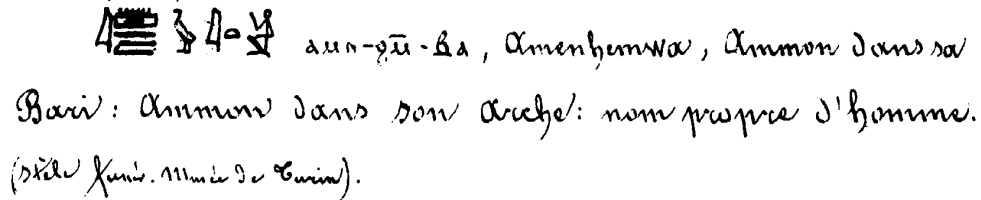 ⲁⲙⲛ-ϩⲙ̅-ⲃⲁ, Amenhemwa, Ammon dans sa
Bari: Ammon dans son Arche: nom propre d'homme.
(Stèle funér. Musée de Turin).